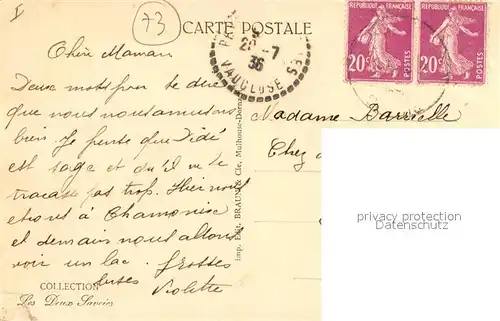 I
73
CARTE POSTALE
Chère Maman
Deux mots pour te dire
que nous nous amusons
bien. Je pense que Dédé
est sage et qu'il ne te
tracasse pas trop. Hier nous
étions à Chamonix
et demain nous allons
voir un lac. Grosses
bises
Violette
COLLECTION
Les Deux Savoies
Imp. Edit. BRAUN & Cie, Mulhouse-Dornach
-7
36
VAUCLUSE
REPUBLIQUE FRANÇAISE
20c
POSTES
REPUBLIQUE FRANÇAISE
20c
POSTES
Madame Barrielle
Chez
privacy protection
Datenschutz